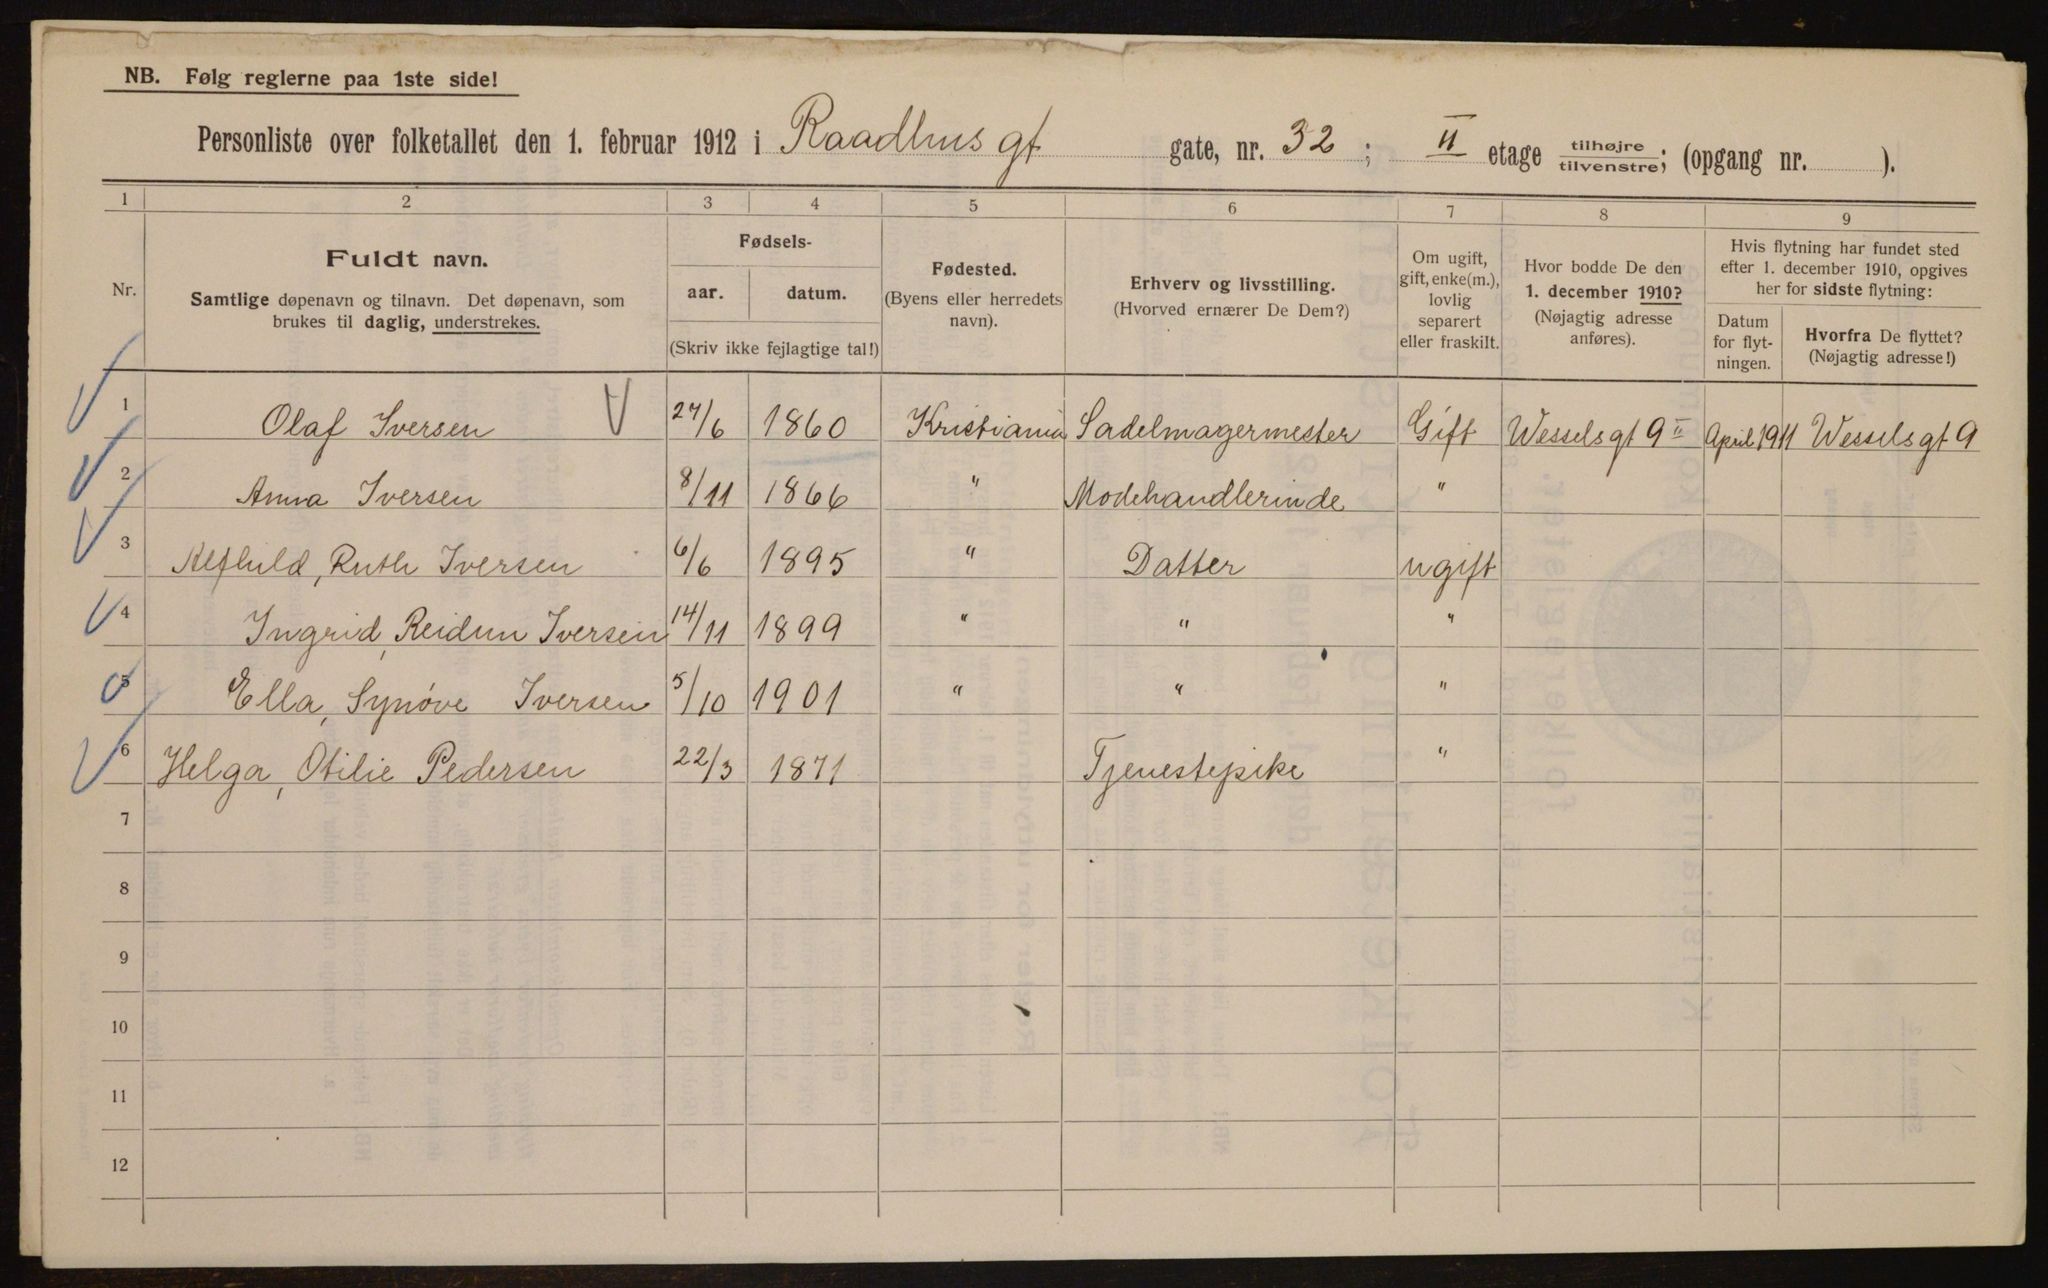 NB. Følg reglerne paa 1ste side!
Personliste over folketallet den 1. februar 1912 i Raadhus gt gate, nr. 32 ; II etage tilhøjre/tilvenstre; (opgang nr. ).
1 2 3 4 5 6 7 8 9
Nr.
Fuldt navn.
Samtlige døpenavn og tilnavn. Det døpenavn, som
brukes til daglig, understrekes.
Fødsels-
aar. datum.
(Skriv ikke fejlagtige tal!)
Fødested.
(Byens eller herredets
navn).
Erhverv og livsstilling.
(Hvorved ernærer De Dem?)
Om ugift,
gift, enke(m.),
lovlig
separert
eller fraskilt.
Hvor bodde De den
1. december 1910?
(Nøjagtig adresse
anføres).
Hvis flytning har fundet sted
efter 1. december 1910, opgives
her for sidste flytning:
Datum
for flyt-
ningen.
Hvorfra De flyttet?
(Nøjagtig adresse!)
1 Olaf Iversen 27/6 1860 Kristiania Sadelmagermester Gift Wessels gt 9 II April 1911 Wessels gt 9
2 Anna Iversen 8/11 1866 " Modehandlerinde "
3 Alfhild, Ruth Iversen 6/6 1895 " Datter ugift
4 Ingrid, Reidun Iversen 14/11 1899 " " "
5 Ella, Synøve Iversen 5/10 1901 " " "
6 Helga, Otilie Pedersen 22/3 1871 Tjenestepike "
7
8
9
10
11
12